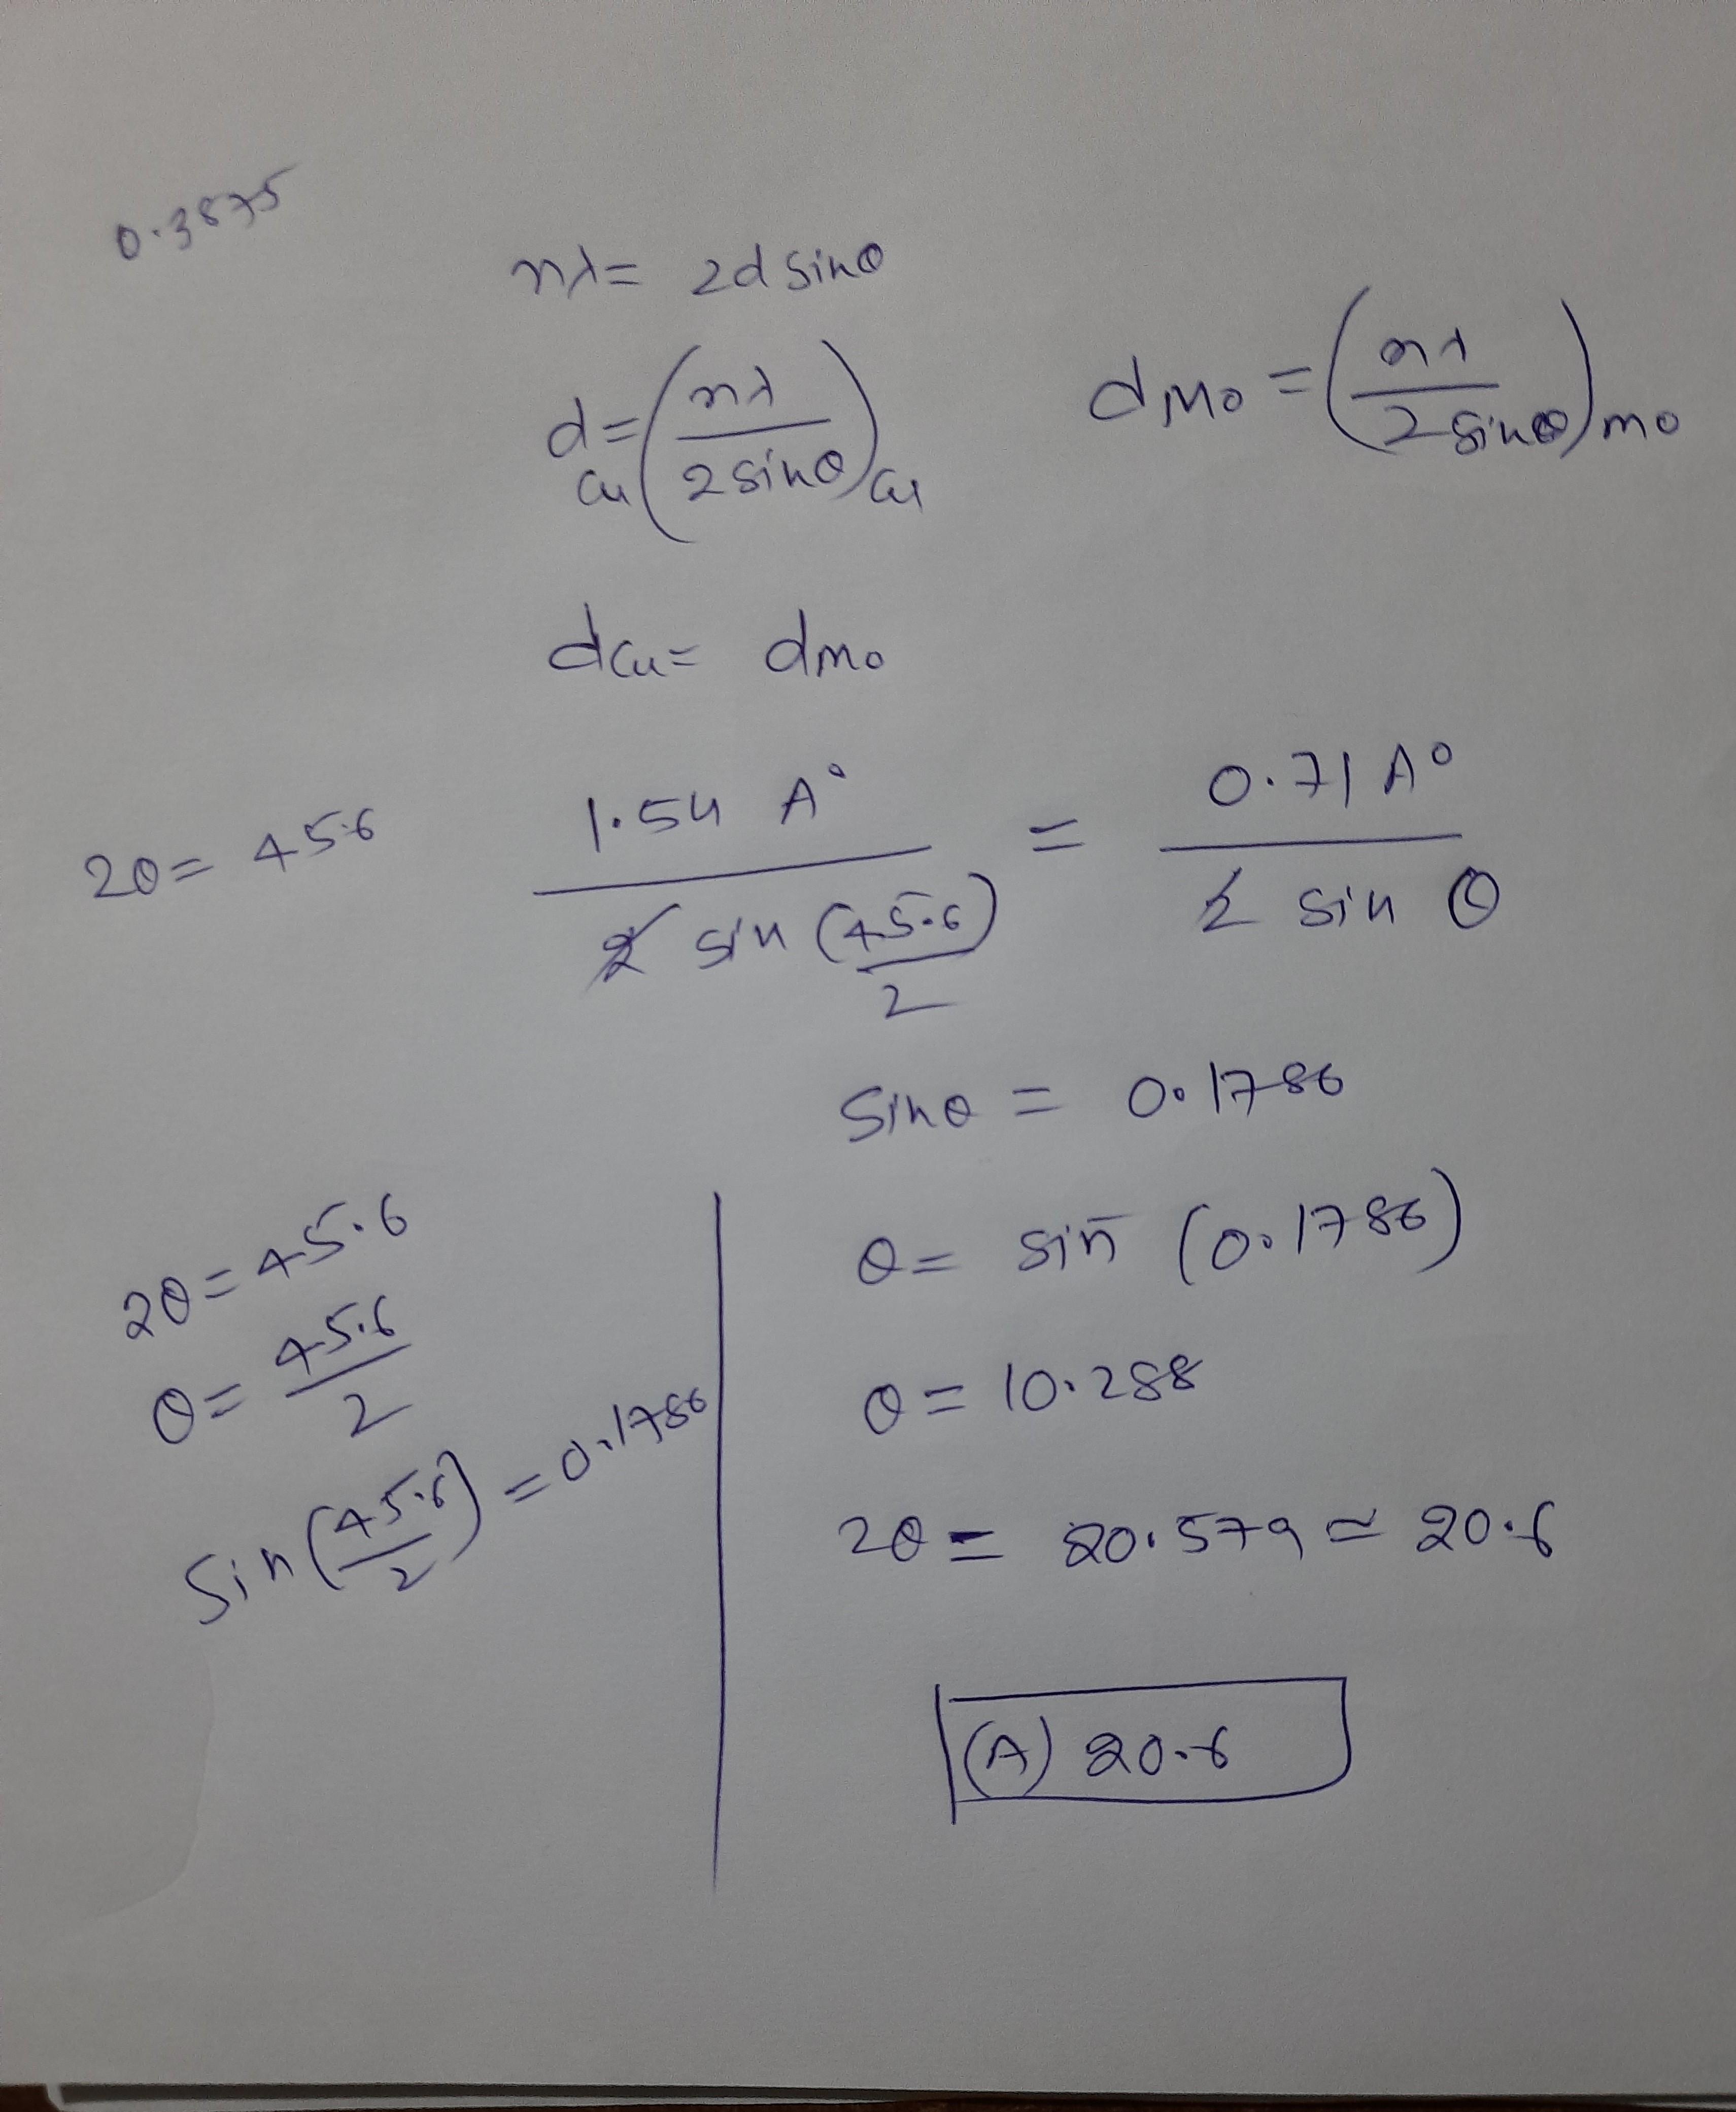 0.3875
nλ = 2d sinθ
d Cu = (nλ / 2 sinθ) Cu
dMo = (nλ / 2 sinθ) mo
dCu = dmo
2θ = 45.6
1.54 A° / 2 sin (45.6)/2 = 0.71 A° / 2 sin θ
sinθ = 0.1786
2θ = 45.6
θ = 45.6 / 2
sin (45.6 / 2) = 0.1786
θ = sin⁻ (0.1786)
θ = 10.288
2θ = 20.579 ≃ 20.6
(A) 20.6